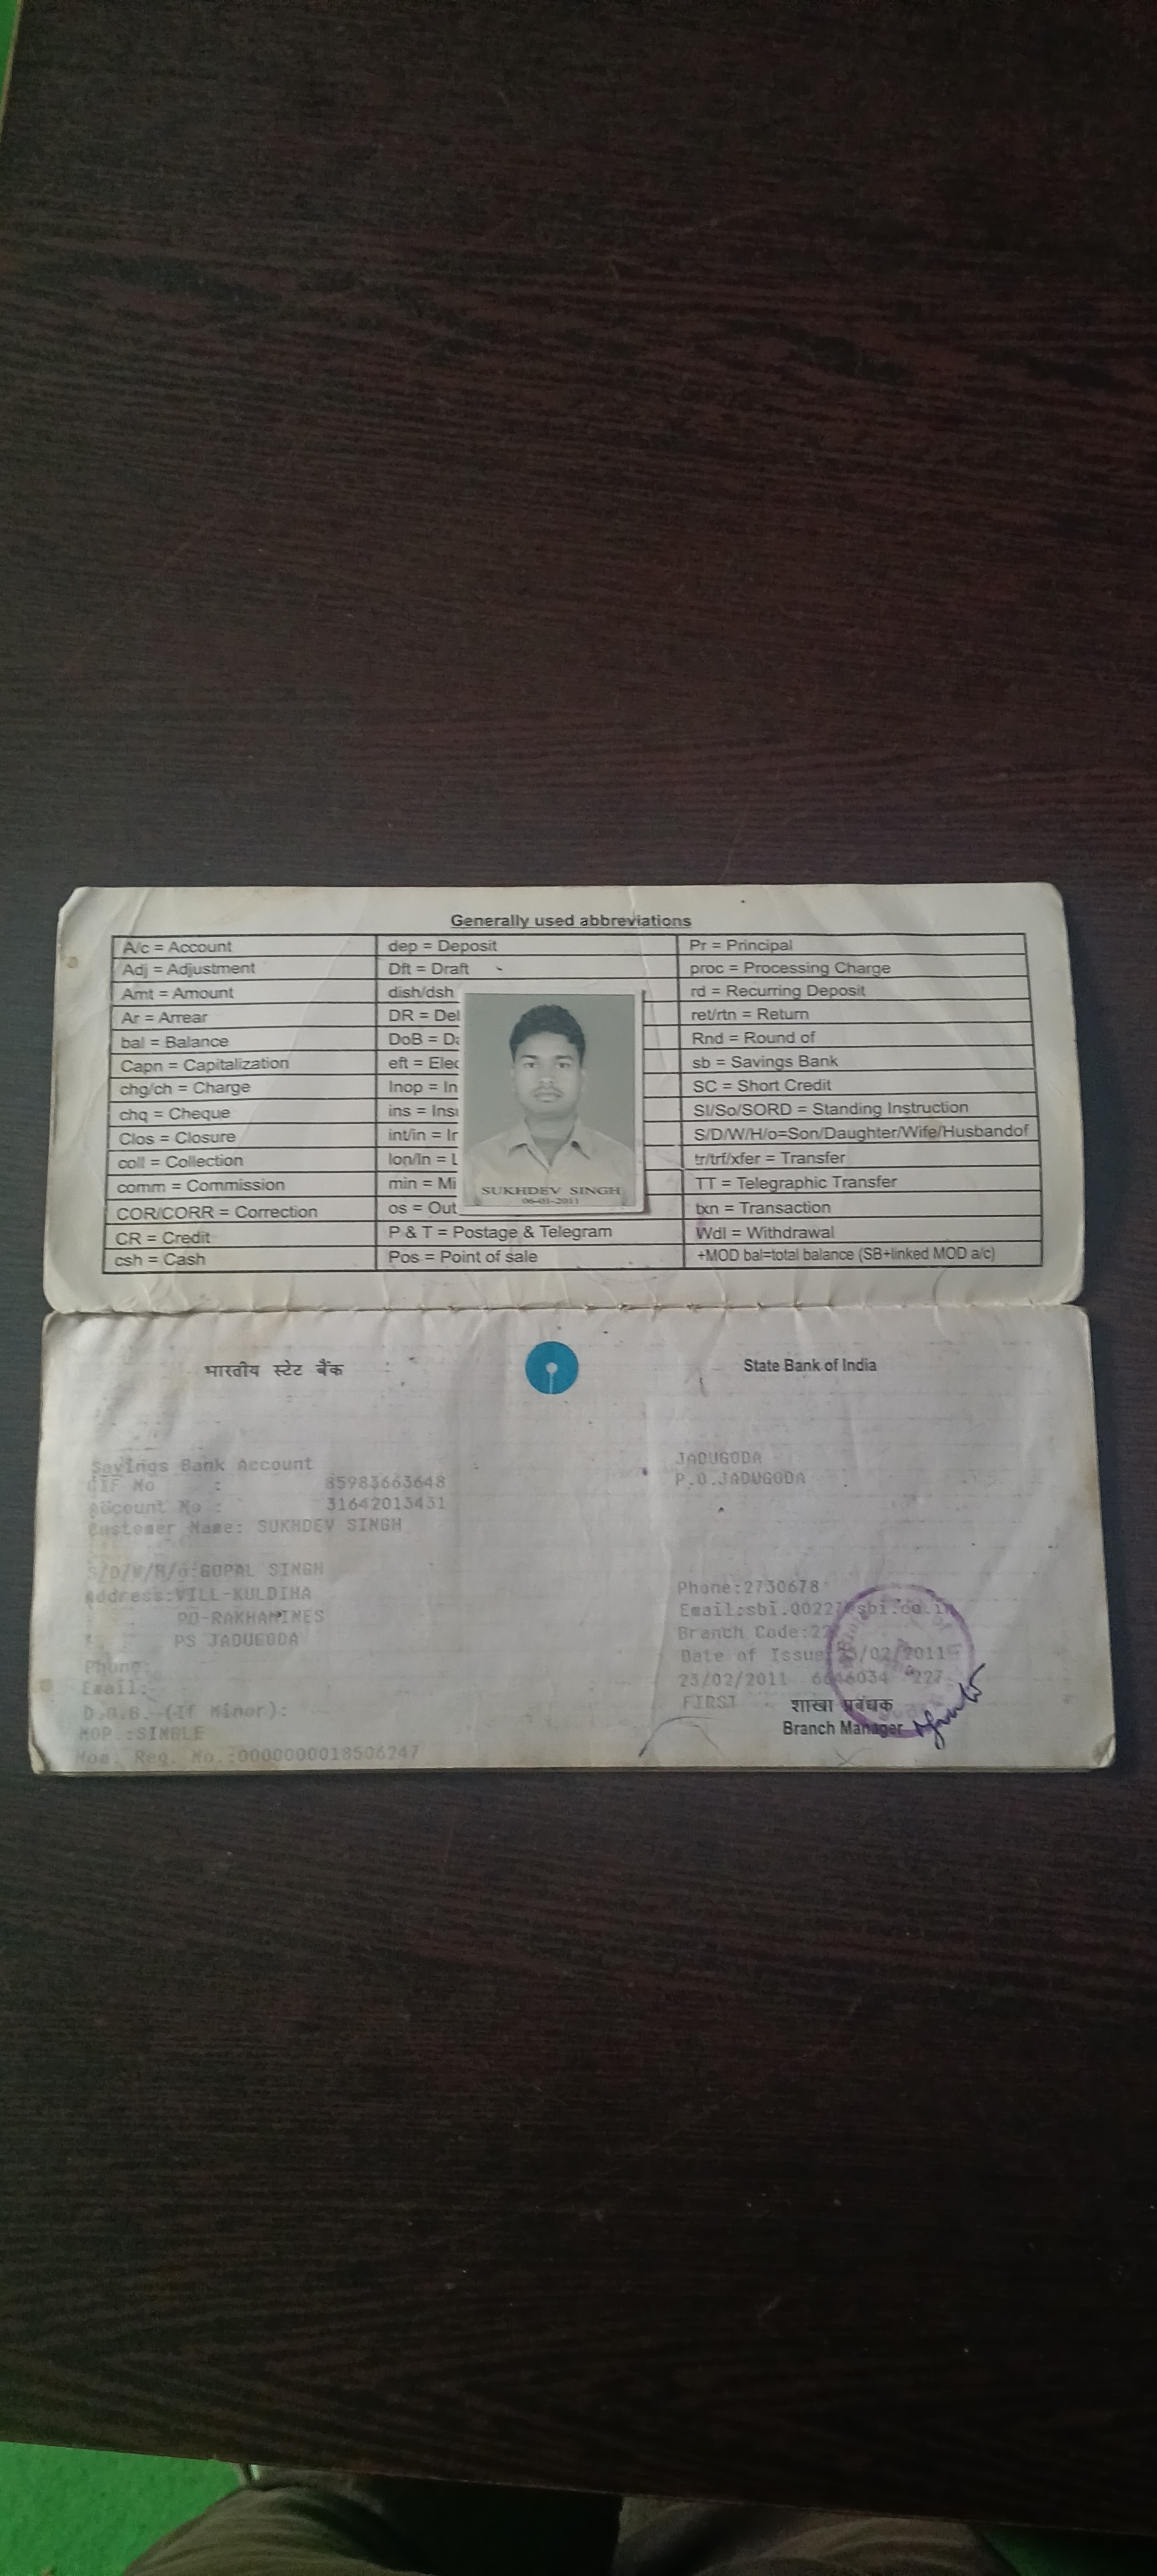 Generally used abbreviations
A/c = Account
dep = Deposit
Pr = Principal
Adj = Adjustment
Dft = Draft
proc = Processing Charge
Amt = Amount
dish/dsh
rd = Recurring Deposit
Ar = Arrear
DR = De
ret/rtn = Return
bal = Balance
DoB = D
Rnd = Round of
Capn = Capitalization
eft = Elec
sb = Savings Bank
chg/ch = Charge
Inop = In
SC = Short Credit
chq = Cheque
ins = Ins
SI/So/SORD = Standing Instruction
Clos = Closure
int/in = Ir
S/D/W/H/o=Son/Daughter/Wife/Husbandof
coll = Collection
lon/ln = L
tr/trf/xfer = Transfer
comm = Commission
min = Mi
TT = Telegraphic Transfer
COR/CORR = Correction
os = Out
txn = Transaction
CR = Credit
P & T = Postage & Telegram
Wdl = Withdrawal
csh = Cash
Pos = Point of sale
+MOD bal=total balance (SB+linked MOD a/c)
SUKHDEV SINGH
06-01-2011
भारतीय स्टेट बैंक
State Bank of India
Savings Bank Account
CIF No : 85983663648
Account No : 31642013431
Customer Name: SUKHDEV SINGH
S/D/W/H/o:GOPAL SINGH
Address:VILL-KULDIHA
PO-RAKHAMINES
PS JADUGODA
Phone:
Email:
D.O.B. (If Minor):
MOP :SINGLE
Nom. Reg. No.:0000000018506247
JADUGODA
P.O.JADUGODA
Phone:2730678
Email:sbi.00227@sbi.co.in
Branch Code:22
Date of Issue /02/2011
23/02/2011 227
FIRST
शाखा प्रबंधक
Branch Manager